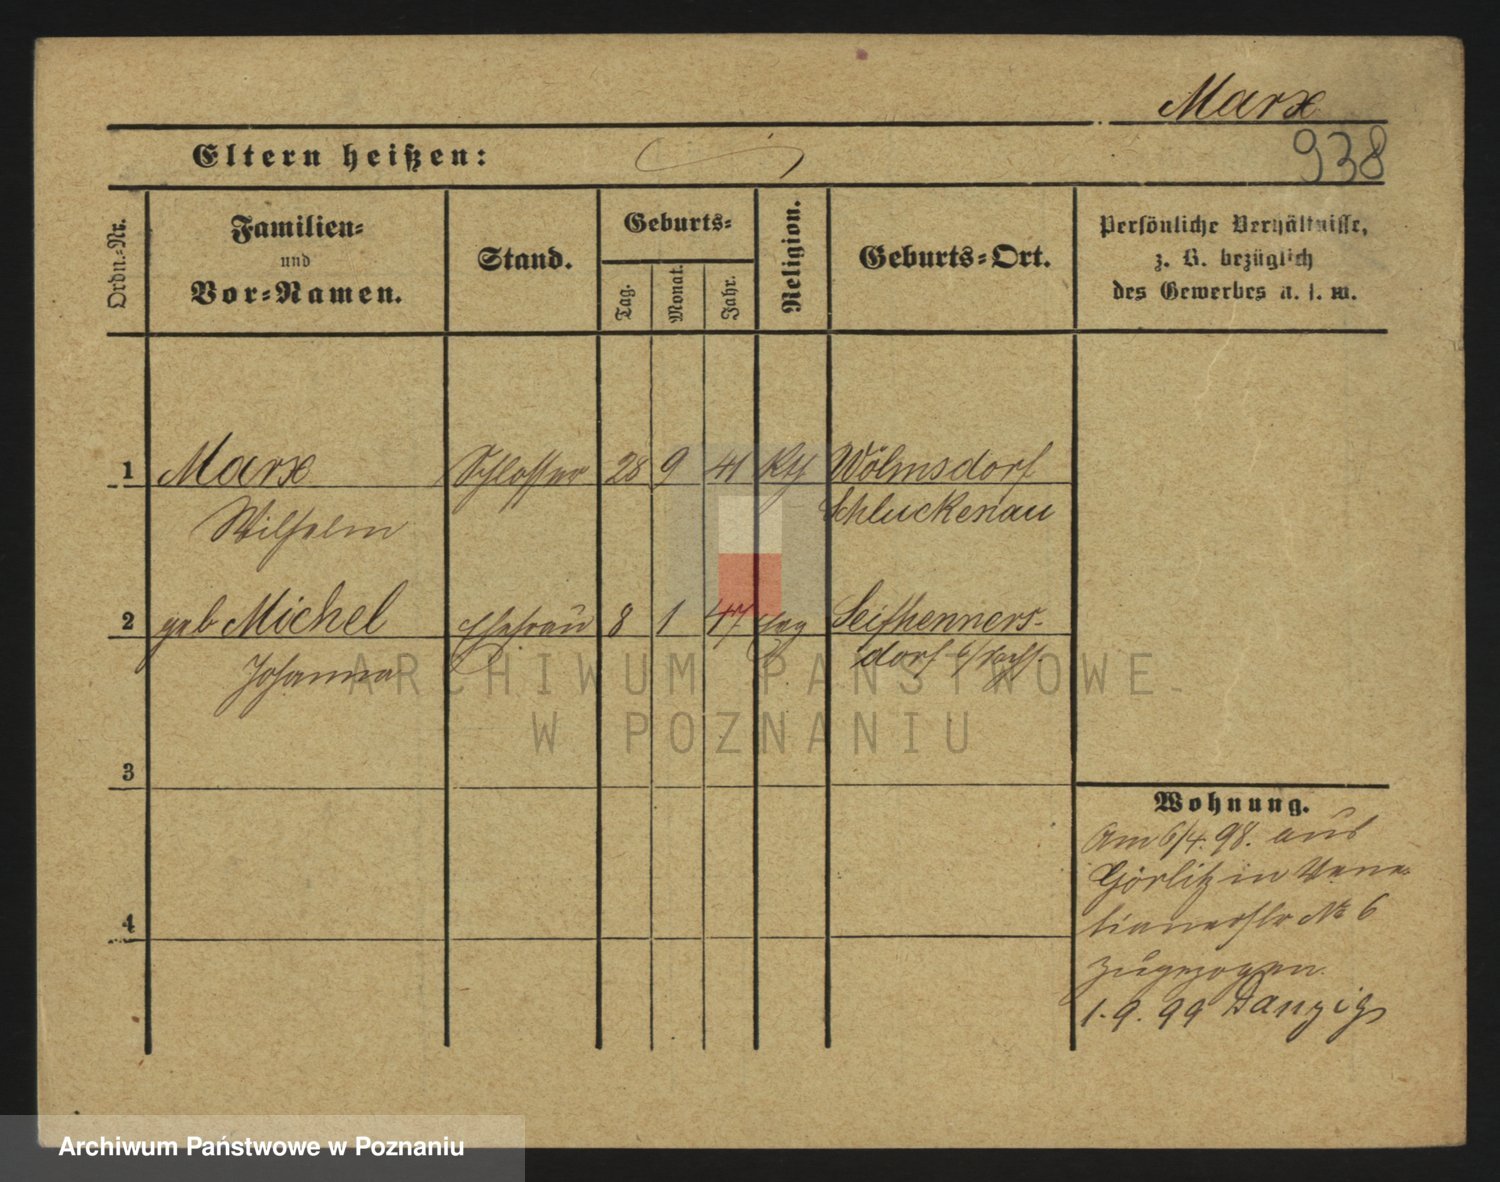 Marx
938
Eltern heißen:
Ordn.-Nr.
Familien-
und
Vor-Namen.
Stand.
Geburts-
Tag.
Monat.
Jahr.
Religion.
Geburts-Ort.
Persönliche Verhältnisse,
z. B. bezüglich
des Gewerbes u. s. w.
1 Marx Schlosser 28 9 41 Kth Wölmsdorf
Wilhelm Schluckenau
2 geb Michel Ehefrau 8 1 47 Evg Seifhenners-
Johanna dorf
3
4
Wohnung.
Am 6/4. 98. aus
Görlitz in Vene-
tianerstr № 6
zugezogen.
1. 9. 99 Danzig
ARCHIWUM PAŃSTWOWE
W POZNANIU
Archiwum Państwowe w Poznaniu